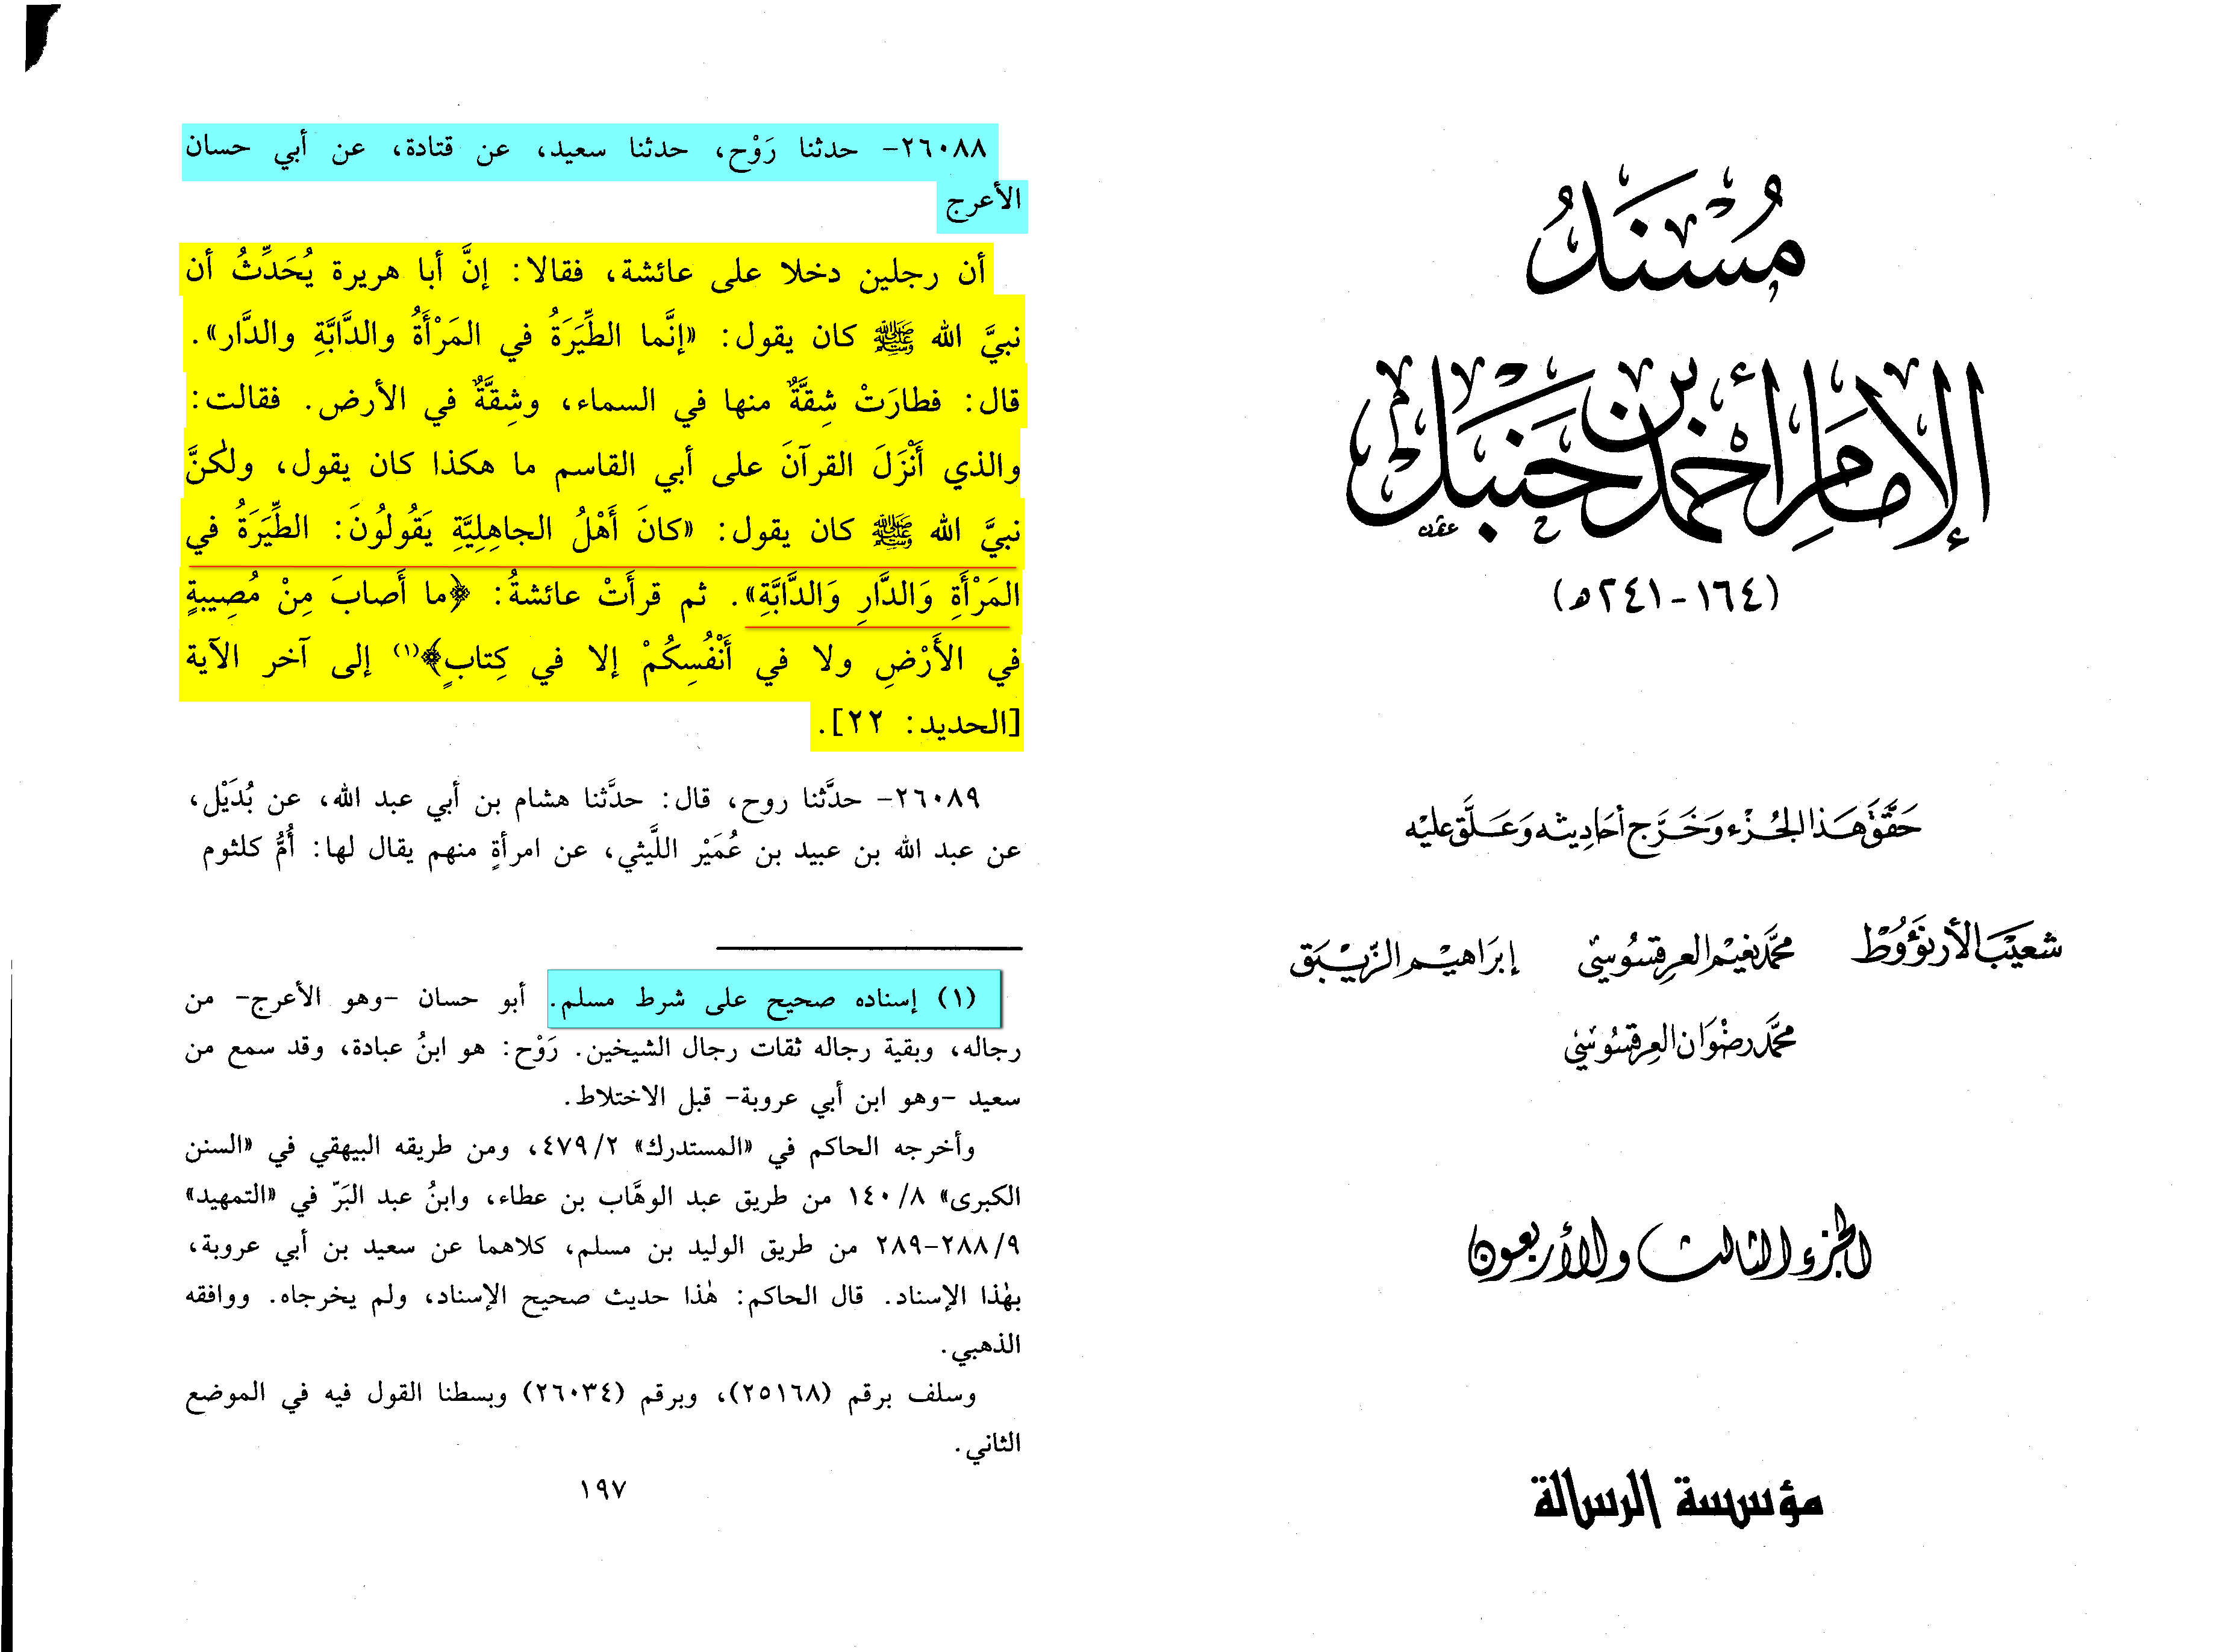 مُسْنَدُ
الإمَامِ أَحْمَد بْن حَنْبَل
(١٦٤-٢٤١ه)
حَقَّقَ هَذا الجُزْء وَخَرَّج أحَادِيثه وَعَلَّق عليْه
شعَيْبَ الأرنَؤُوط محمَّد نعَيْم العرقسُوسيّ إبرَاهيْم الزَّيْبَق
محمَّد رضْوَان العِرقسُوسيّ
الجزء الثالث والأربعون
مؤسسة الرسالة
٢٦٠٨٨- حدثنا رَوْح، حدثنا سعيد، عن قتادة، عن أبي حسان
الأعرج
أن رجلين دخلا على عائشة، فقالا: إنَّ أبا هريرة يُحَدِّثُ أن
نبيَّ الله ﷺ كان يقول: «إنَّما الطِّيَرَةُ في المَرْأَةُ والدَّابَّةِ والدَّار».
قال: فطارَتْ شِقَّةٌ منها في السماء، وشِقَّةٌ في الأرض. فقالت:
والذي أَنْزَلَ القرآنَ على أبي القاسم ما هكذا كان يقول، ولٰكنَّ
نبيَّ الله ﷺ كان يقول: «كانَ أَهْلُ الجاهِلِيَّةِ يَقُولُونَ: الطِّيَرَةُ في
المَرْأَةِ وَالدَّارِ وَالدَّابَّةِ». ثم قرأَتْ عائشةُ: ﴿ما أَصابَ مِنْ مُصِيبةٍ
في الأَرْضِ ولا في أَنْفُسِكُمْ إلا في كِتابٍ﴾(١) إلى آخر الآية
[الحديد: ٢٢].
٢٦٠٨٩- حدَّثنا روح، قال: حدَّثنا هشام بن أبي عبد الله، عن بُدَيْل،
عن عبد الله بن عبيد بن عُمَيْر اللَّيثي، عن امرأةٍ منهم يقال لها: أُمُّ كلثوم
(١) إسناده صحيح على شرط مسلم. أبو حسان -وهو الأعرج- من
رجاله، وبقية رجاله ثقات رجال الشيخين. رَوْح: هو ابنُ عبادة، وقد سمع من
سعيد -وهو ابن أبي عروبة- قبل الاختلاط.
وأخرجه الحاكم في «المستدرك» ٤٧٩/٢، ومن طريقه البيهقي في «السنن
الكبرى» ١٤٠/٨ من طريق عبد الوهَّاب بن عطاء، وابنُ عبد البَرّ في «التمهيد»
٢٨٨/٩-٢٨٩ من طريق الوليد بن مسلم، كلاهما عن سعيد بن أبي عروبة،
بهٰذا الإسناد. قال الحاكم: هٰذا حديث صحيح الإسناد، ولم يخرجاه. ووافقه
الذهبي.
وسلف برقم (٢٥١٦٨)، وبرقم (٢٦٠٣٤) وبسطنا القول فيه في الموضع
الثاني.
١٩٧